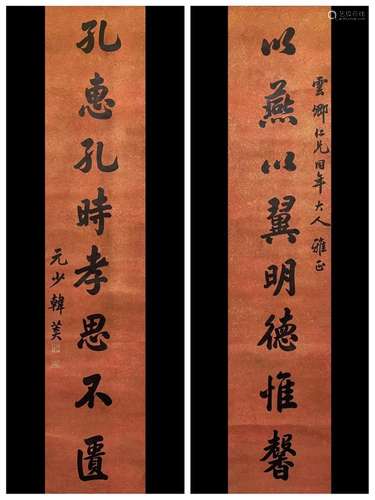 以燕以翼明德惟馨
雲卿仁兄同年大人雅正
孔惠孔時孝思不匱
元少韓菼